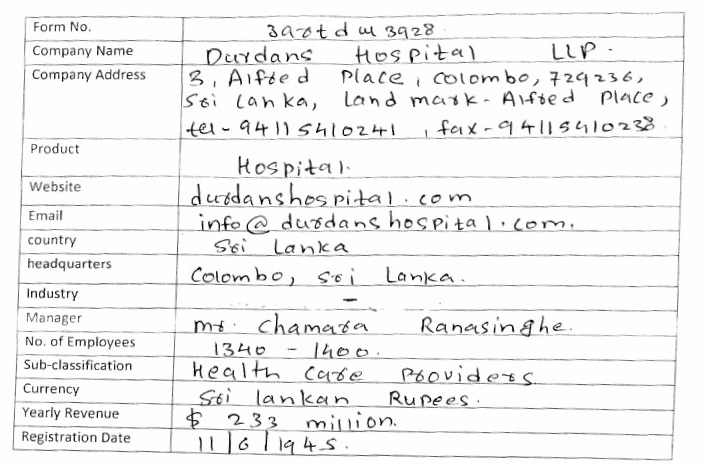 Form No. 3arotdw3928
Company Name Durdans Hospital LLP.
Company Address 3, Alfred Place, Colombo, 729236,
Sri Lanka, Land mark - Alfred Place,
tel - 94115410241, fax - 94115410238
Product Hospital.
Website durdanshospital.com
Email info@durdanshospital.com.
country Sri Lanka
headquarters Colombo, Sri Lanka.
Industry -
Manager Mr. Chamara Ranasinghe.
No. of Employees 1340 - 1400.
Sub-classification Health care Providers
Currency Sri lankan Rupees.
Yearly Revenue $ 233 million.
Registration Date 11/6/1945.